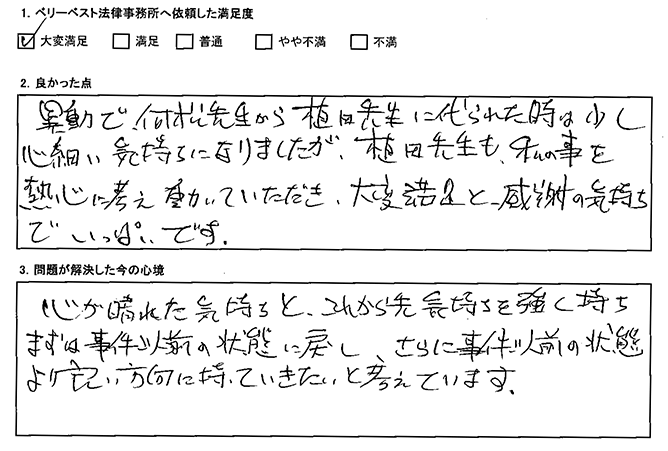 1. ベリーベスト法律事務所へ依頼した満足度
☑ 大変満足 □ 満足 □ 普通 □ やや不満 □ 不満
2. 良かった点
異動で、付松先生から植田先生に代られた時は少し
心細い気持ちになりましたが、植田先生も、私の事を
熱心に考え動いていただき、大変満足と、感謝の気持ち
でいっぱいです。
3. 問題が解決した今の心境
心が晴れた気持ちと、これから先気持ちを強く持ち
まずは事件以前の状態に戻し、さらに事件以前の状態
より良い方向に持っていきたいと考えています。